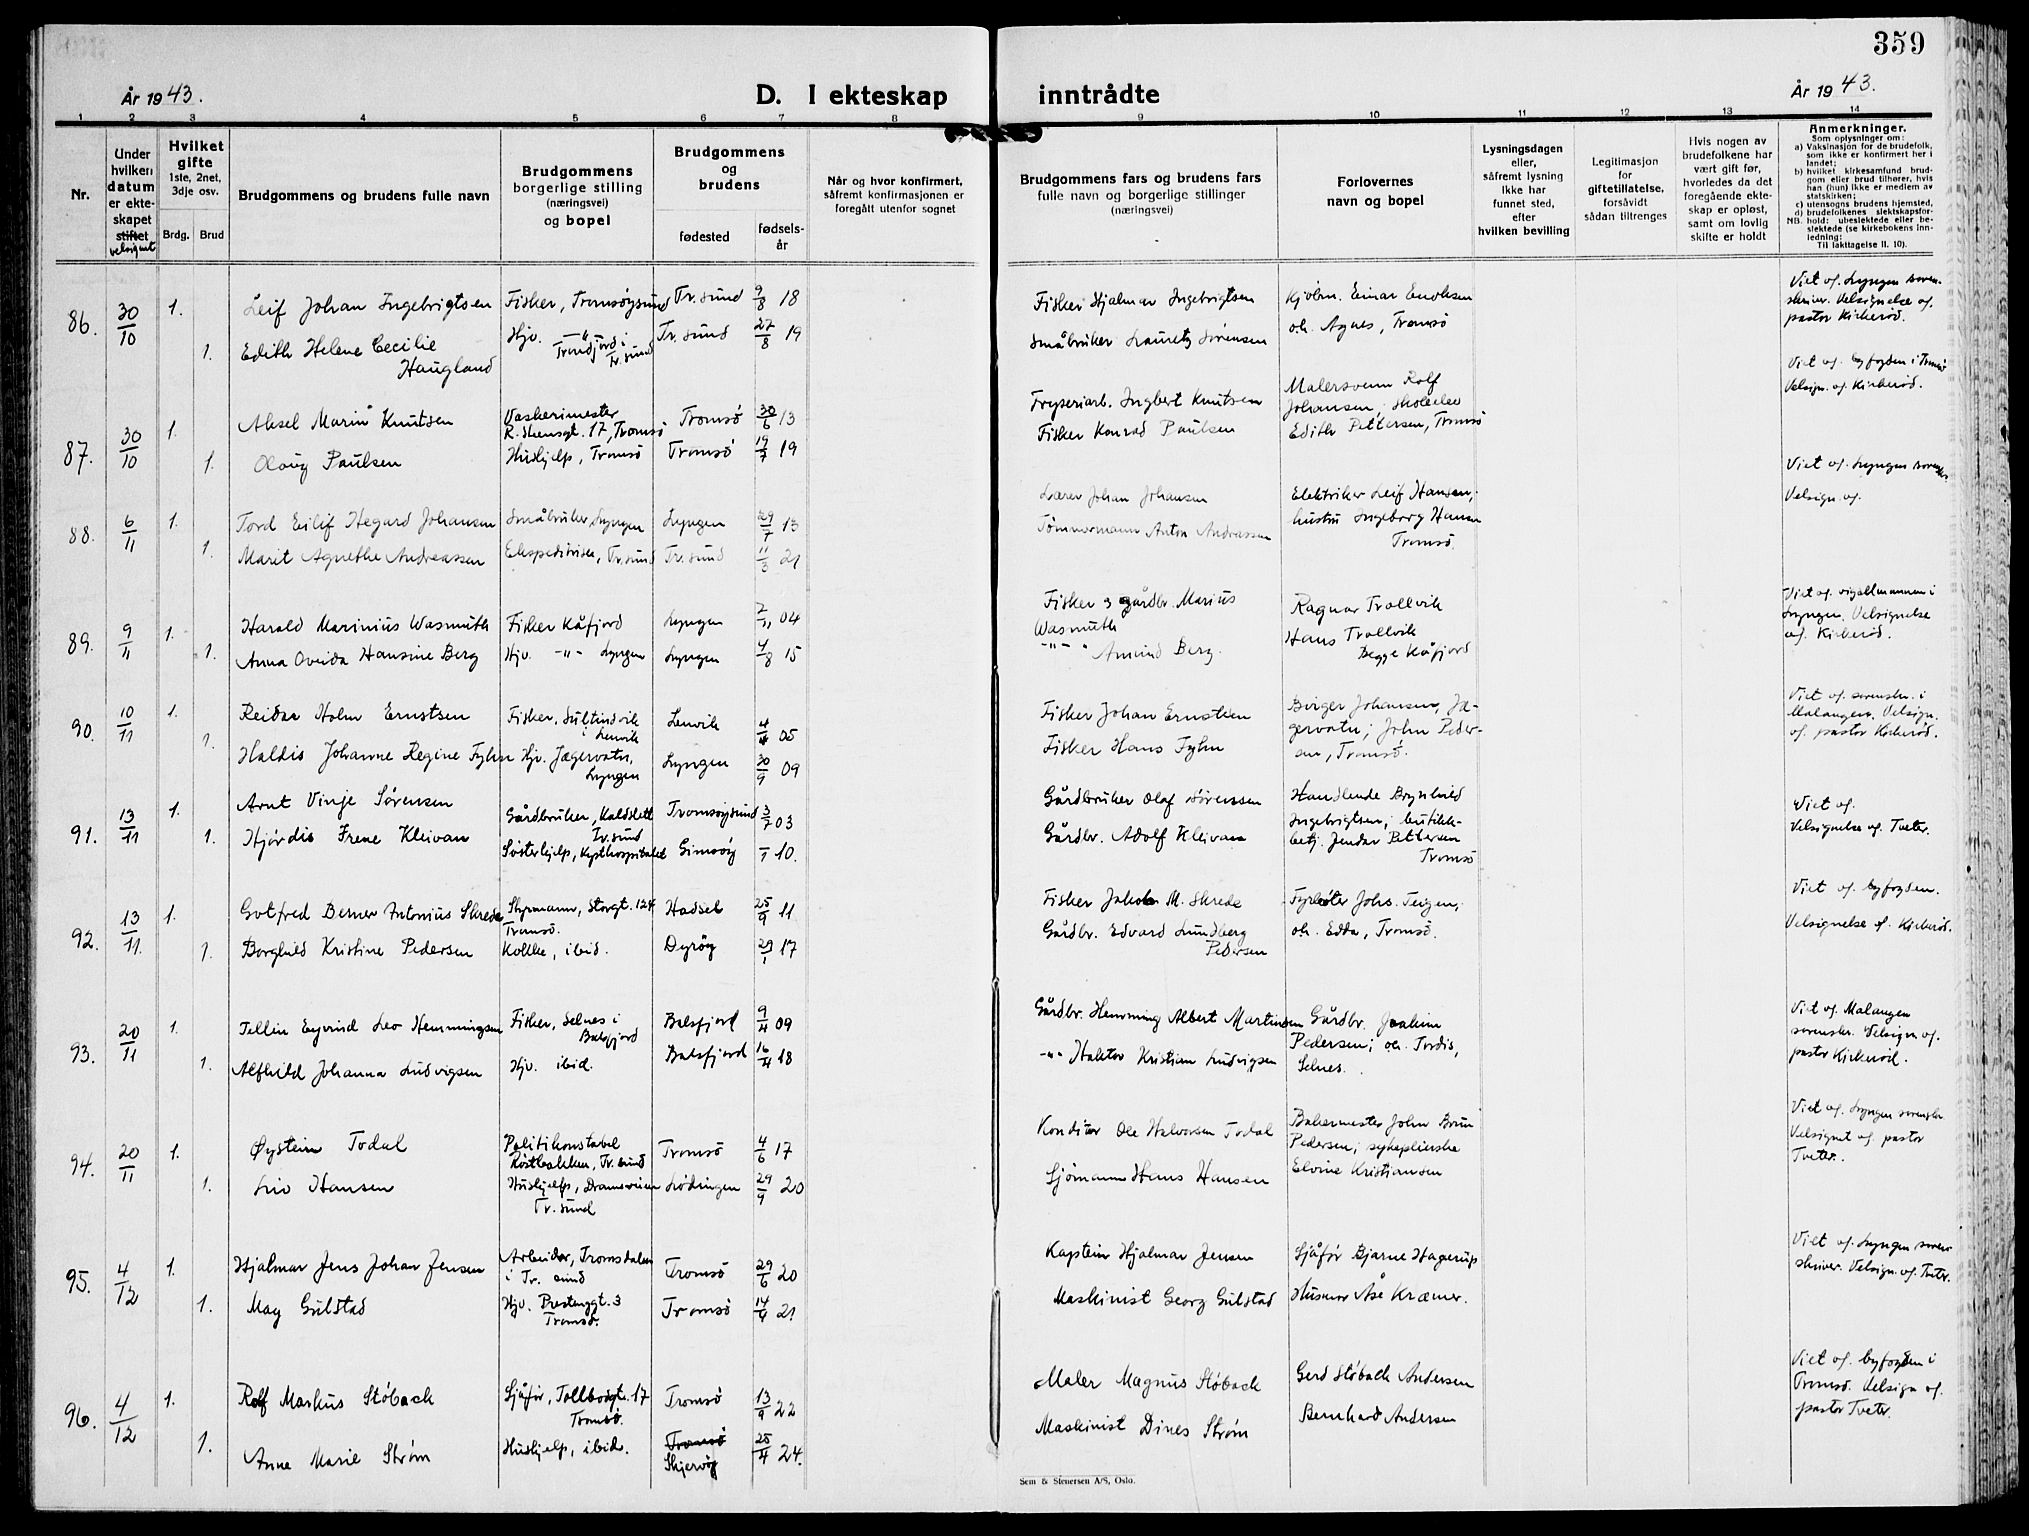 359
År 1943.
D. I ekteskap inntrådte
År 1943.
1 2 3 4 5 6 7 8 9 10 11 12 13 14
Nr.
Under hvilken datum er ekteskapet stiftet velsignet
Hvilket gifte 1ste, 2net, 3dje osv.
Brdg. Brud
Brudgommens og brudens fulle navn
Brudgommens borgerlige stilling (næringsvei) og bopel
Brudgommens og brudens
fødested
fødsels-år
Når og hvor konfirmert, såfremt konfirmasjonen er foregått utenfor sognet
Brudgommens fars og brudens fars fulle navn og borgerlige stillinger (næringsvei)
Forlovernes navn og bopel
Lysningsdagen eller, såfremt lysning ikke har funnet sted, efter hvilken bevilling
Legitimasjon for giftetillatelse, forsåvidt sådan tiltrenges
Hvis nogen av brudefolkene har vært gift før, hvorledes da det foregående ekteskap er opløst, samt om lovlig skifte er holdt
Anmerkninger.
Som oplysninger om:
a) Vaksinasjon for de brudefolk, som ikke er konfirmert her i landet;
b) hvilket kirkesamfund brudgom eller brud tilhører, hvis han (hun) ikke er medlem av statskirken;
c) utensogns brudens hjemsted,
d) brudefolkenes slektskapsforhold: ubeslektede eller beslektede (se kirkebokens innledning:
NB. Til iakttagelse II. 10).
86. 30/10 1. Leif Johan Ingebrigtsen Fisker, Tromsøysund Tr. sund 9/8 18 Fisker Hjalmar Ingebrigtsen Kjøbm. Einar Enoksen Viet of. Lyngen sorenskriver. Velsignelse of. pastor Kirkerød.
1. Edith Helene Cecilie Haugland Hjv. -"- Trondjord i Tr. sund Tr. sund 27/8 19 Småbruker Lauritz Sørensen oh. Agnes, Tromsø
87. 30/10 1. Aksel Marin Knutsen Vaskerimester R. Steensgt. 17, Tromsø Tromsø 30/6 13 Fryseriarb. Ingbert Knutsen Malersvenn Rolf Johansen, skoleelev Viet of. byfogden i Tromsø Velsign. of. Kirkerød.
1. Olaug Paulsen Hushjelp, Tromsø Tromsø 19/7 19 Fisker Konrad Paulsen Edith Pettersen, Tromsø
88. 6/11 1. Tord Eilif Hegard Johansen Småbruker, Lyngen Lyngen 29/7 13 Lærer Johan Johansen Elektriker Leif Hansen; Viet of. Lyngen sorenskr. Velsign of.
1. Marit Agnethe Andreassen Ekspeditrise, Tr. sund Tr. sund 11/3 21 Tømmermann Anton Andreassen hustru Ingeborg Hansen Tromsø.
89. 9/11 1. Harald Marinius Wasmuth Fisker Kåfjord Lyngen 7/11 04 Fisker og gårdbr. Marius Wasmuth Ragnar Trollvik Viet of. i Lyngen. Velsignelse of. Kirkerød.
1. Anna Oveida Hansine Berg Hjv. -"- Lyngen Lyngen 4/8 15 -"- Amund Berg. Hans Trollvik Begge Kåfjord
90. 10/11 1. Reidar Holm Ernstsen Fisker, Sultindvik i Lenvik Lenvik 4/4 05 Fisker Johan Ernstsen Birger Johansen, Jægervatn; John Pedersen, Tromsø. Viet of. sorenskr. i Malangen. Velsign. of. pastor Kirkerød.
1. Haldis Johanne Regine Fyhn Hjv. Jægervatn, Lyngen Lyngen 30/9 09 Fisker Hans Fyhn
91. 13/11 1. Arnt Vinje Sørensen Gårdbruker, Kaldslett Tr. sund Tromsøysund 3/7 03 Gårdbruker Olaf Sørenssen Handlende Brynhild Ingebrigtsen; butikk- Viet of. Velsignelse of. Tveter.
1. Hjørdis Irene Kleivan Søsterhjelp, Kysthospitalet Gimsøy /1 10. Gårdbr. Adolf Kleivan betj. Jendar Pettersen Tromsø
92. 13/11. 1. Gotfred Berner Antonius Skrede Styrmann, Storgt. 124 Tromsø. Hadsel 25/9 11 Fisker Jakob M. Skrede Fyrbøter Johs. Teigen; Viet of. byfogden. Velsignelse of. Kirkerød.
1. Borghild Kristine Pedersen Kokke, ibid. Dyrøy 29/1 17 Gårdbr. Edvard Lundberg Pedersen oh. Edda, Tromsø.
93. 20/11 1. Tellin Eyvind Leo Hemmingsen Fisker, Selnes i Balsfjord Balsfjord 9/4 09 Gårdbr. Hemming Albert Martinsen Gårdbr. Joakim Pedersen; oh. Tordis, Selnes. Viet of. Malangen sorenskr. Velsign of. pastor Kirkerød.
1. Alfhild Johanna Ludvigsen Hjv. ibid. Balsfjord 16/4 18 -"- Haktor Kristian Ludvigsen
94. 20/11 1. Øystein Todal Politikonstabel Røstbakken, Tr. sund Tromsø 4/6 17 Konditor Ole Halvorsen Todal Bakermester John Bruun Pedersen; sykepleierske Viet of. Lyngen sorenskr Velsignet of. pastor Tveter.
1. Liv Hansen Hushjelp, Dramsveien Tr. sund Lødingen 29/9 20 Sjømann Hans Hansen Elvine Kristiansen
95. 4/12 1. Hjalmar Jens Johan Jensen Arbeider, Tromsdalen i Tr. sund Tromsø 29/6 20 Kaptein Hjalmar Jensen Sjåfør Bjarne Hagerup Viet of. Lyngen sorenskriver. Velsign. of. Tveter.
1. May Gulstad Hjv. Prestenggt. 3 Tromsø. Tromsø 14/4 21 Maskinist Georg Gulstad Husmor Åse Kræmer.
96. 4/12 1. Rolf Markus Støback Sjåfør, Tollbodgt. 17 Tromsø. Tromsø 13/9 22 Maler Magnus Støback Gerd Støback Andersen Viet of. byfogden i Tromsø. Velsign of. pastor Tveter.
1. Anne Marie Strøm Hushjelp, ibid. Tromsø Skjervøy 25/4 24. Maskinist Dines Strøm Bernhard Andersen
Sem & Stenersen A/S, Oslo.